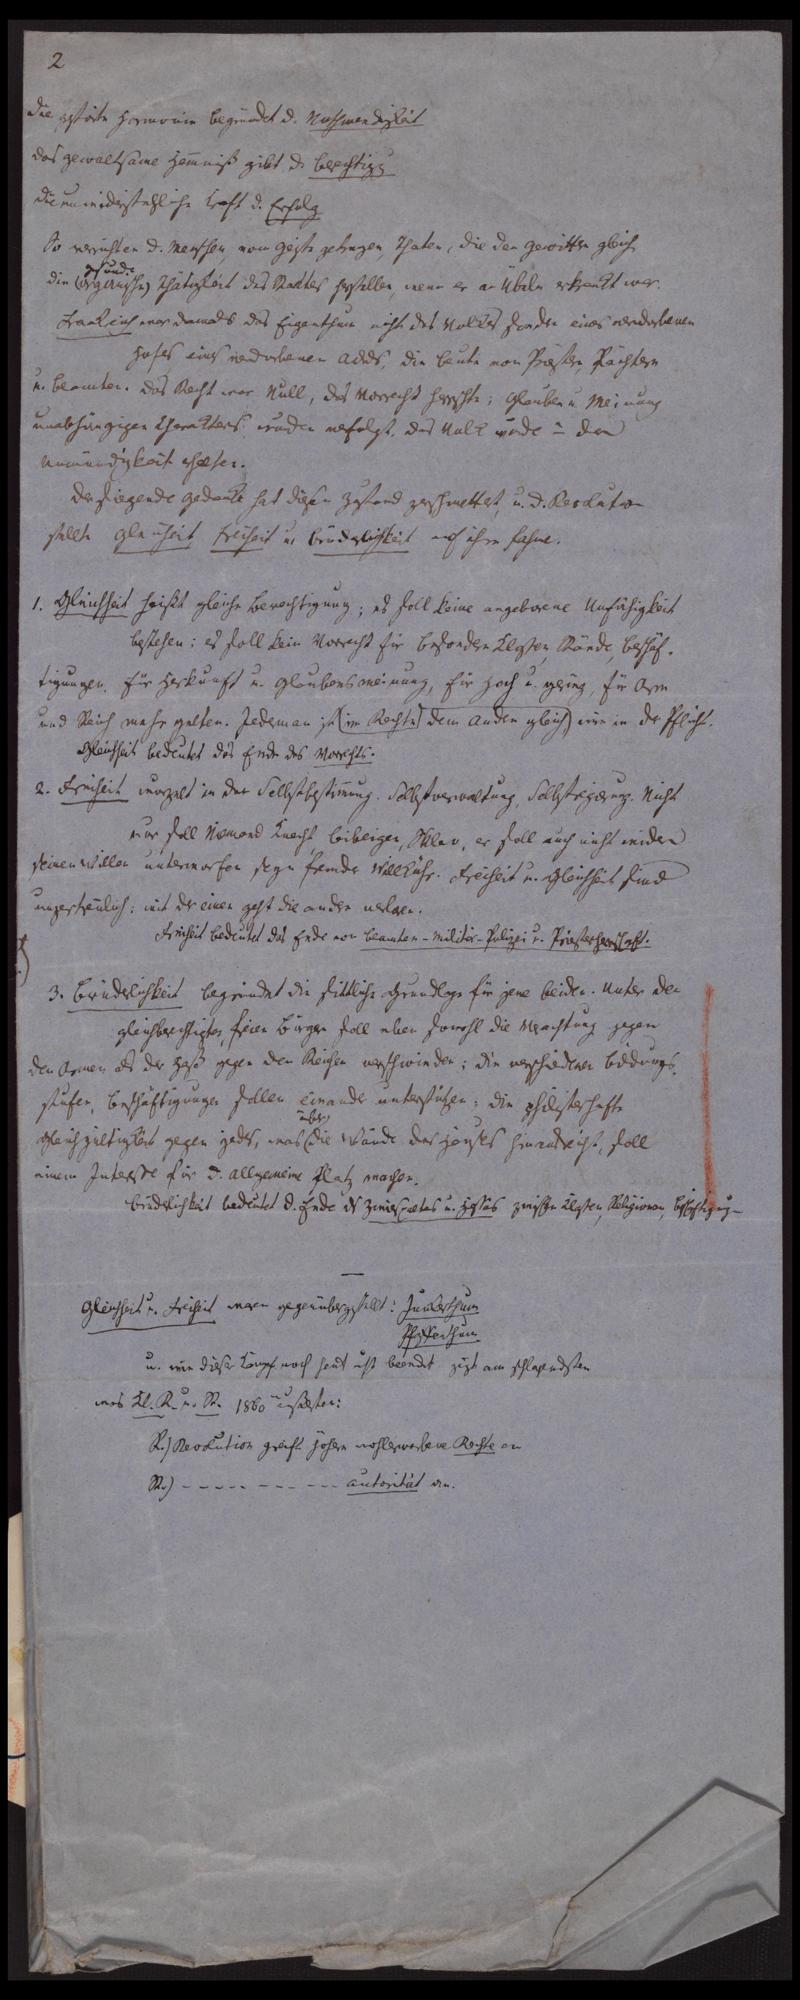 2
Die gestörte Harmonie begründet d. Nothwendigkeit
das gewaltsame Hemniß gibt d. Berechtigg
die unwiderstehliche Kraft d. Erfolg
So verrichten d. Menschen, vom Geiste getragen, Thaten, die den Gewittern gleich
gesunde
die (organische) Thätigkeit des Staates herstellen, wenn er an Übeln erkrankt war.
Frankreich war damals das Eigenthum nicht des Volkes sondern eines verdorbenen
Hofes, eines verdorbenen Adels, die Beute von Priestern, Pächtern
u. Beamten. Das Recht war Null, das Vorrecht herrschte; Glauben u. Meinung
unabhängigen Charakters wurden verfolgt, das Volk wurde in der
Unmündigkeit erhalten.
Der siegende Gedanke hat diesen Zustand zerschmettert, u. d. Revolution
stellte Gleichheit Freiheit u. Brüderlichkeit auf ihre Fahne.
1. Gleichheit heißt gleiche Berechtigung; es soll keine angeborene Unfähigkeit
bestehen; es soll kein Vorrecht für besondere Klassen, Stände, Beschäf-
tigungen, für Herkunft u. Glaubensmeinung, für Hoch u. gering, für Arm
und Reich mehr gelten. Jederman ist (im Rechte) dem andern gleich) wie in der Pflicht.
Gleichheit bedeutet das Ende des Vorrechts.
2. Freiheit wurzelt in der Selbstbestimung. Selbstverwaltung, Selbstregierung. Nicht
nur soll Niemand Knecht, leibeigen, Sklav, er soll auch nicht wider
seinen Willen unterworfen seyn fremder Willkühr. Freiheit u. Gleichheit sind
unzertrenlich: mit der einen geht die andere verloren.
Freiheit bedeutet das Ende von Beamten-Militär-Polizei u. Priesterherrschaft.
3. Brüderlichkeit begründet die sittliche Grundlage für jene beiden. Unter den
gleichberechtigten, freien Bürgern soll eben sowohl die Verachtung gegen
den Armen als der Haß gegen den Reichen verschwinden; die verschiedenen Bildungs-
stufen, Beschäftigungen sollen einander unterstützen; die philisterhafte
über
Gleichgültigkeit gegen jedes, was (die Wände des Hauses hinausreicht, soll
einem Interesse für d. Allgemeine Platz machen.
Brüderlichkeit bedeutet d. Ende des Zwiespaltes u. Hasses zwischen Klassen, Religionen, Beschäftigung-
Gleichheit u. Freiheit waren gegenübergestellt: Junkerthum
Pfaffenthum
u. wie dieser Kampf noch heut nicht beendet zeigt am schlagendsten
was Kl. R. u. St. 1860 äußerten:
R.) Revolution greift höhere wohlerworbene Rechte an
St.) - - - - - - - - - Autorität an.